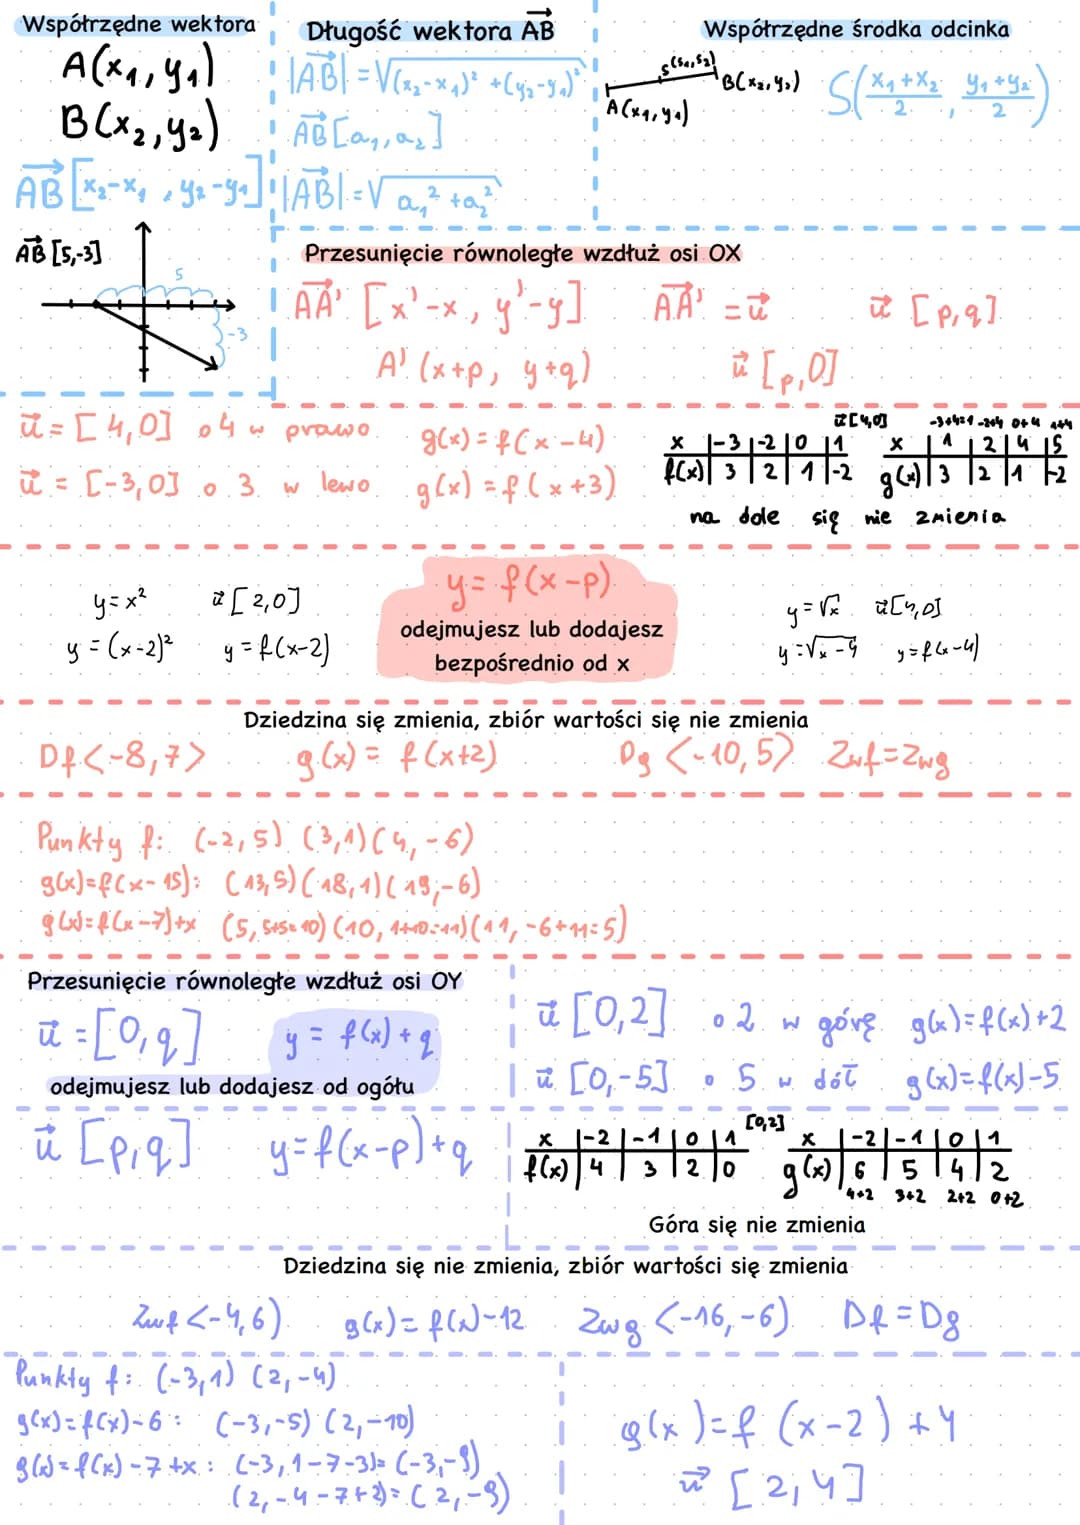 Współrzędne wektora
A(x₁, y₁)
B(x₂, y₂)
AB⃗ [x₂-x₁, y₂-y₁]
AB⃗ [5,-3]
5
-3
Długość wektora AB⃗
|AB⃗| = √(x₂-x₁)² + (y₂-y₁)²
AB⃗ [a₁, a₂]
|AB⃗| = √a₁² + a₂²
Współrzędne środka odcinka
S(s₁, s₂)
B(x₂, y₂)
A(x₁, y₁)
S(x₁+x₂/2, y₁+y₂/2)
Przesunięcie równoległe wzdłuż osi OX
AA'⃗ [x'-x, y'-y] AA'⃗ = u⃗ u⃗ [p,q]
A' (x+p, y+q) u⃗ [p,0]
u⃗ = [4,0] o 4 w prawo g(x) = f(x-4)
u⃗ = [-3,0] o 3 w lewo g(x) = f(x+3)
u⃗ [4,0] -3+4=1 -2+4 0+4 1+4
x | -3 | -2 | 0 | 1 x | 1 | 2 | 4 | 5
f(x) | 3 | 2 | 1 | -2 g(x) | 3 | 2 | 1 | -2
na dole się nie zmienia
y=x² u⃗ [2,0]
y=(x-2)² y=f(x-2)
y= f(x-p)
odejmujesz lub dodajesz
bezpośrednio od x
y=√x u⃗[4,0]
y=√x-4 y=f(x-4)
Dziedzina się zmienia, zbiór wartości się nie zmienia
Df<-8,7> g(x) = f(x+2) Dg <-10,5> Zwf=Zwg
Punkty f: (-2,5) (3,1) (4,-6)
g(x)=f(x-15): (13,5) (18,1) (19,-6)
g(x)=f(x-7)+x (5, 5+5=10) (10, 1+10=11) (11, -6+11=5)
Przesunięcie równoległe wzdłuż osi OY
u⃗ =[0,q] y= f(x)+q
odejmujesz lub dodajesz od ogółu
u⃗ [p,q] y=f(x-p)+q
u⃗ [0,2] o 2 w górę g(x)=f(x)+2
u⃗ [0,-5] o 5 w dół g(x)=f(x)-5
[0,2]
x | -2 | -1 | 0 | 1 x | -2 | -1 | 0 | 1
f(x) | 4 | 3 | 2 | 0 g(x) | 6 | 5 | 4 | 2
4+2 3+2 2+2 0+2
Góra się nie zmienia
Dziedzina się nie zmienia, zbiór wartości się zmienia
Zwf <-4,6) g(x)= f(x)-12 Zwg <-16,-6) Df=Dg
Punkty f: (-3,1) (2,-4)
g(x)=f(x)-6: (-3,-5) (2,-10)
g(x)=f(x)-7+x: (-3, 1-7-3)= (-3,-9)
(2, -4-7+2)= (2,-9)
g(x)=f (x-2) +4
u⃗ [2,4]